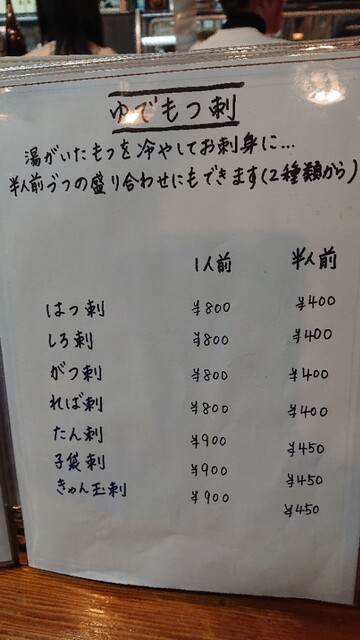 ゆでもつ刺
湯がいたもつを冷やしてお刺身に…
半人前づつの盛り合わせにもできます(2種類から)
1人前 半人前
はつ刺 ¥800 ¥400
しろ刺 ¥800 ¥400
がつ刺 ¥800 ¥400
ればー刺 ¥800 ¥400
たん刺 ¥900 ¥450
子袋刺 ¥900 ¥450
きゅん玉刺 ¥900 ¥450